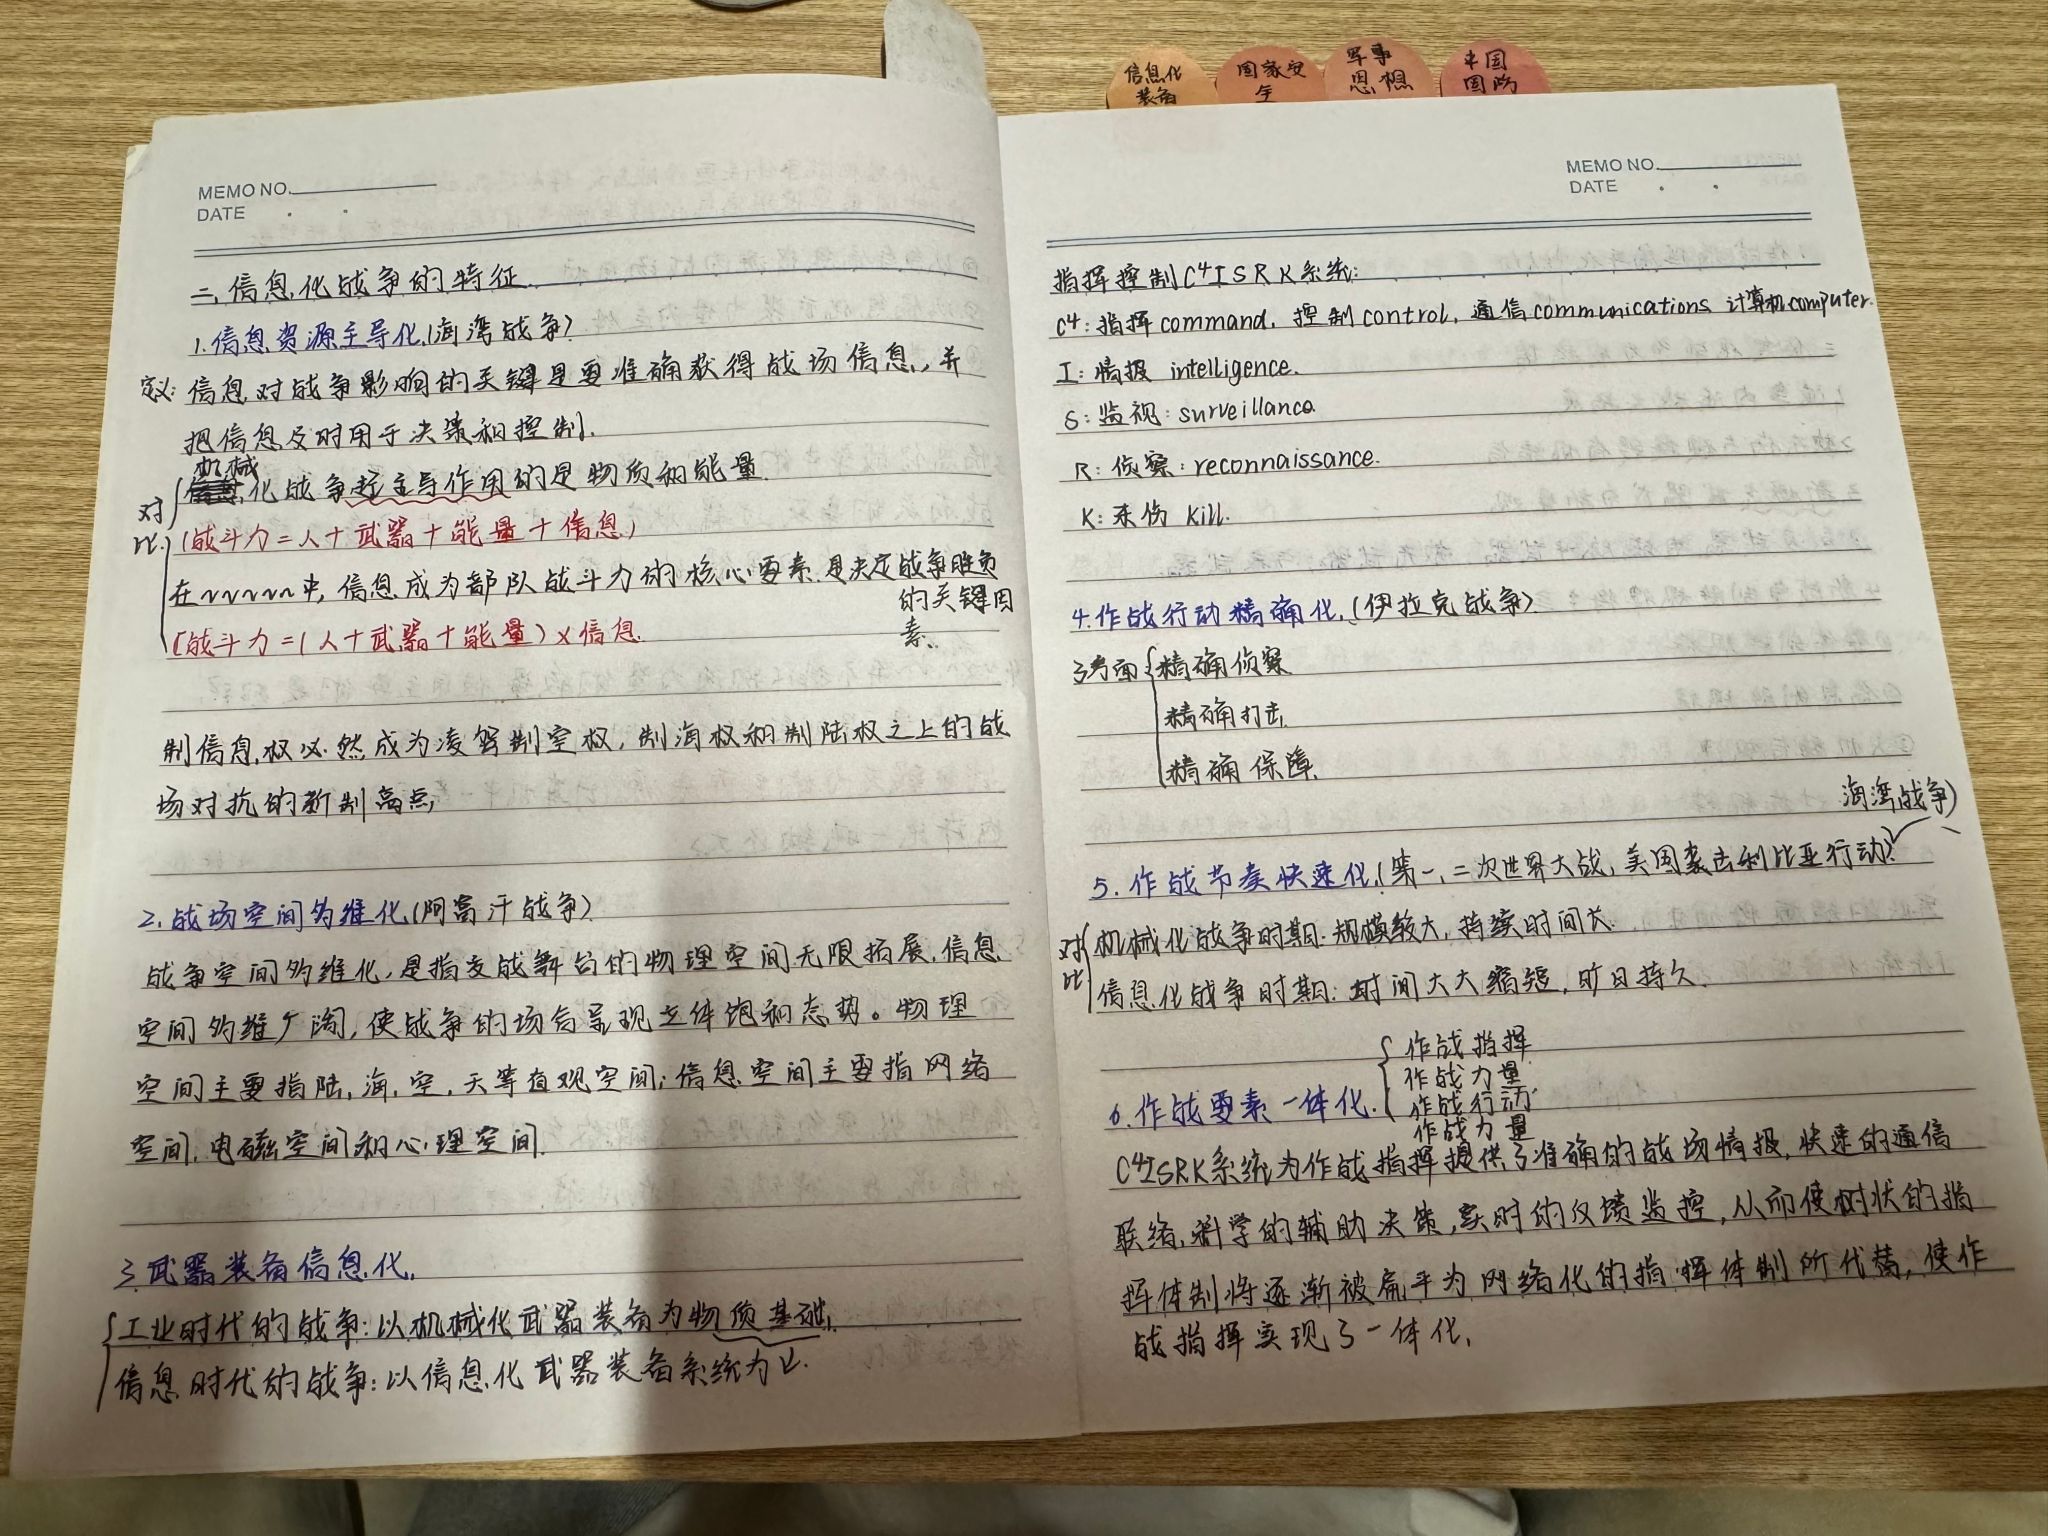 信息化
装备
国家安
全
军事
思想
中国
国防
MEMO NO.
DATE . .
二、信息化战争的特征
1.信息资源主导化(海湾战争)
定义:信息对战争影响的关键是要准确获得战场信息,并
把信息及时用于决策和控制.
机械
对比 化战争起主导作用的是物质和能量.
(战斗力=人+武器+能量+信息)
在~~~~~中,信息成为部队战斗力的核心要素.是决定战争胜负
的关键因
素.
(战斗力=(人+武器+能量)×信息.
制信息权必然成为凌驾制空权,制海权和制陆权之上的战
场对抗的新制高点,
2.战场空间多维化(阿富汗战争)
战争空间多维化,是指交战舞台的物理空间无限拓展,信息
空间多维广阔,使战争的场合呈现立体饱和态势。物理
空间主要指陆,海,空,天等直观空间;信息空间主要指网络
空间,电磁空间和心理空间.
3.武器装备信息化.
工业时代的战争:以机械化武器装备为物质基础,
信息时代的战争:以信息化武器装备系统为
MEMO NO.
DATE . .
指挥控制C⁴ISRK系统:
C⁴:指挥command,控制control,通信communications 计算机computer.
I:情报 intelligence.
S:监视:surveillance.
R:侦察:reconnaissance.
K:杀伤 kill.
4.作战行动精确化.(伊拉克战争)
3方面 精确侦察
精确打击.
精确保障.
海湾战争)
5.作战节奏快速化(第一,二次世界大战,美国袭击利比亚行动)
对比 机械化战争时期:规模较大,持续时间长.
信息化战争时期:时间大大缩短,旷日持久.
作战指挥
作战力量
6.作战要素一体化. 作战行动.
作战力量
C⁴ISRK系统为作战指挥提供了准确的战场情报,快速的通信
联络,科学的辅助决策,实时的反馈监控,从而使树状的指
挥体制将逐渐被扁平为网络化的指挥体制所代替,使作
战指挥实现了一体化,